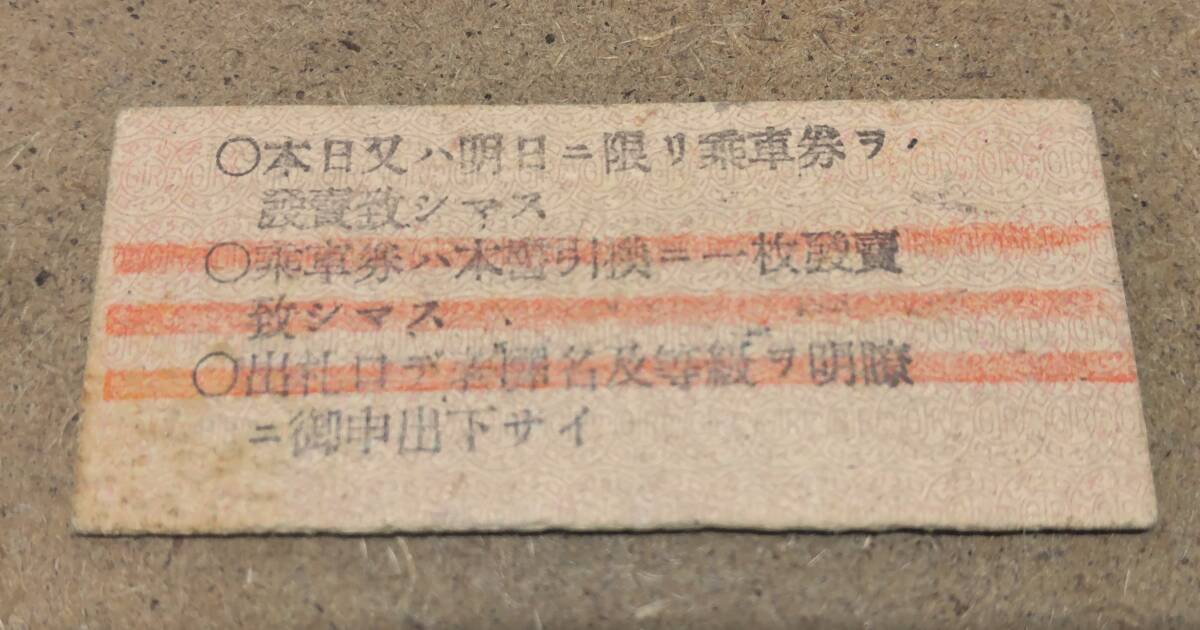 〇本日又ハ明日ニ限リ乘車券ヲ
發賣致シマス
〇乘車券ハ本證引換ニ一枚發賣
致シマス
〇出札口デ 名及等級ヲ明瞭
ニ御申出下サイ